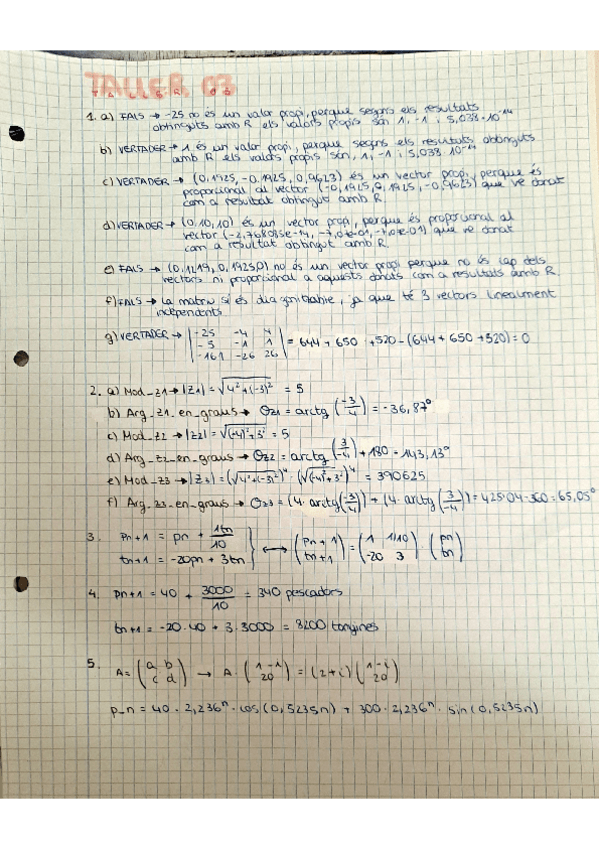 TALLER 03
1. a) FALS → -25 no és un valor propi, perque segons els resultats
obtinguts amb R els valors propis són 1, -1 i 5,038·10⁻¹⁴
b) VERTADER → 1 és un valor propi, perque segons els resultats obtinguts
amb R els valors propis són, 1, -1 i 5,038·10⁻¹⁴
c) VERTADER → (0,1925, -0,1925, 0,9623) és un vector propi, perque és
proporcional al vector (-0,1925, 0,1925, -0,9623) que ve donat
com a resultat obtingut amb R.
d) VERTADER → (0,10,10) és un vector propi, perque és proporcional al
vector (-2,768085e-14, -7,07e-01, -7,07e-01) que ve donat
com a resultat obtingut amb R.
e) FALS → (0,1219, 0,1925,0) no és un vector propi perque no és cap dels
vectors ni proporcional a aquests donats com a resultats amb R.
f) FALS → La matriu si és diagonitzable, ja que té 3 vectors linealment
independents.
g) VERTADER → |-25 -4 4
-5 -1 1
-161 -26 26| = 644 + 650 + 520 - (644 + 650 + 520) = 0
2. a) Mod_z1 → |z1| = √4² + (-3)² = 5
b) Arg_z1_en_graus → θz1 = arctg (-3/4) = -36,87°
c) Mod_z2 → |z2| = √(-4)² + 3² = 5
d) Arg_z2_en_graus → θz2 = arctg (3/-4) + 180 = 143,13°
e) Mod_z3 → |z3| = (√4² + (-3)²)⁴ · (√(-4)² + 3²)⁴ = 390625
f) Arg_z3_en_graus → θz3 = (4·arctg(-3/4)) + (4·arctg(3/-4)) = 425,04-360 = 65,05°
3. Pn+1 = pn + 1tn/10
tn+1 = -20pn + 3tn } ⟷ (Pn+1 tn+1) = (1 1/10 -20 3) · (pn tn)
4. pn+1 = 40 + 3000/10 = 340 pescadors
tn+1 = -20·40 + 3·3000 = 8200 tonyines
5. A = (a b c d) → A · (1 -i 20) = (2+i) (1-i 20)
p_n = 40 · 2,236ⁿ · cos(0,5235n) + 300 · 2,236ⁿ · sin(0,5235n)